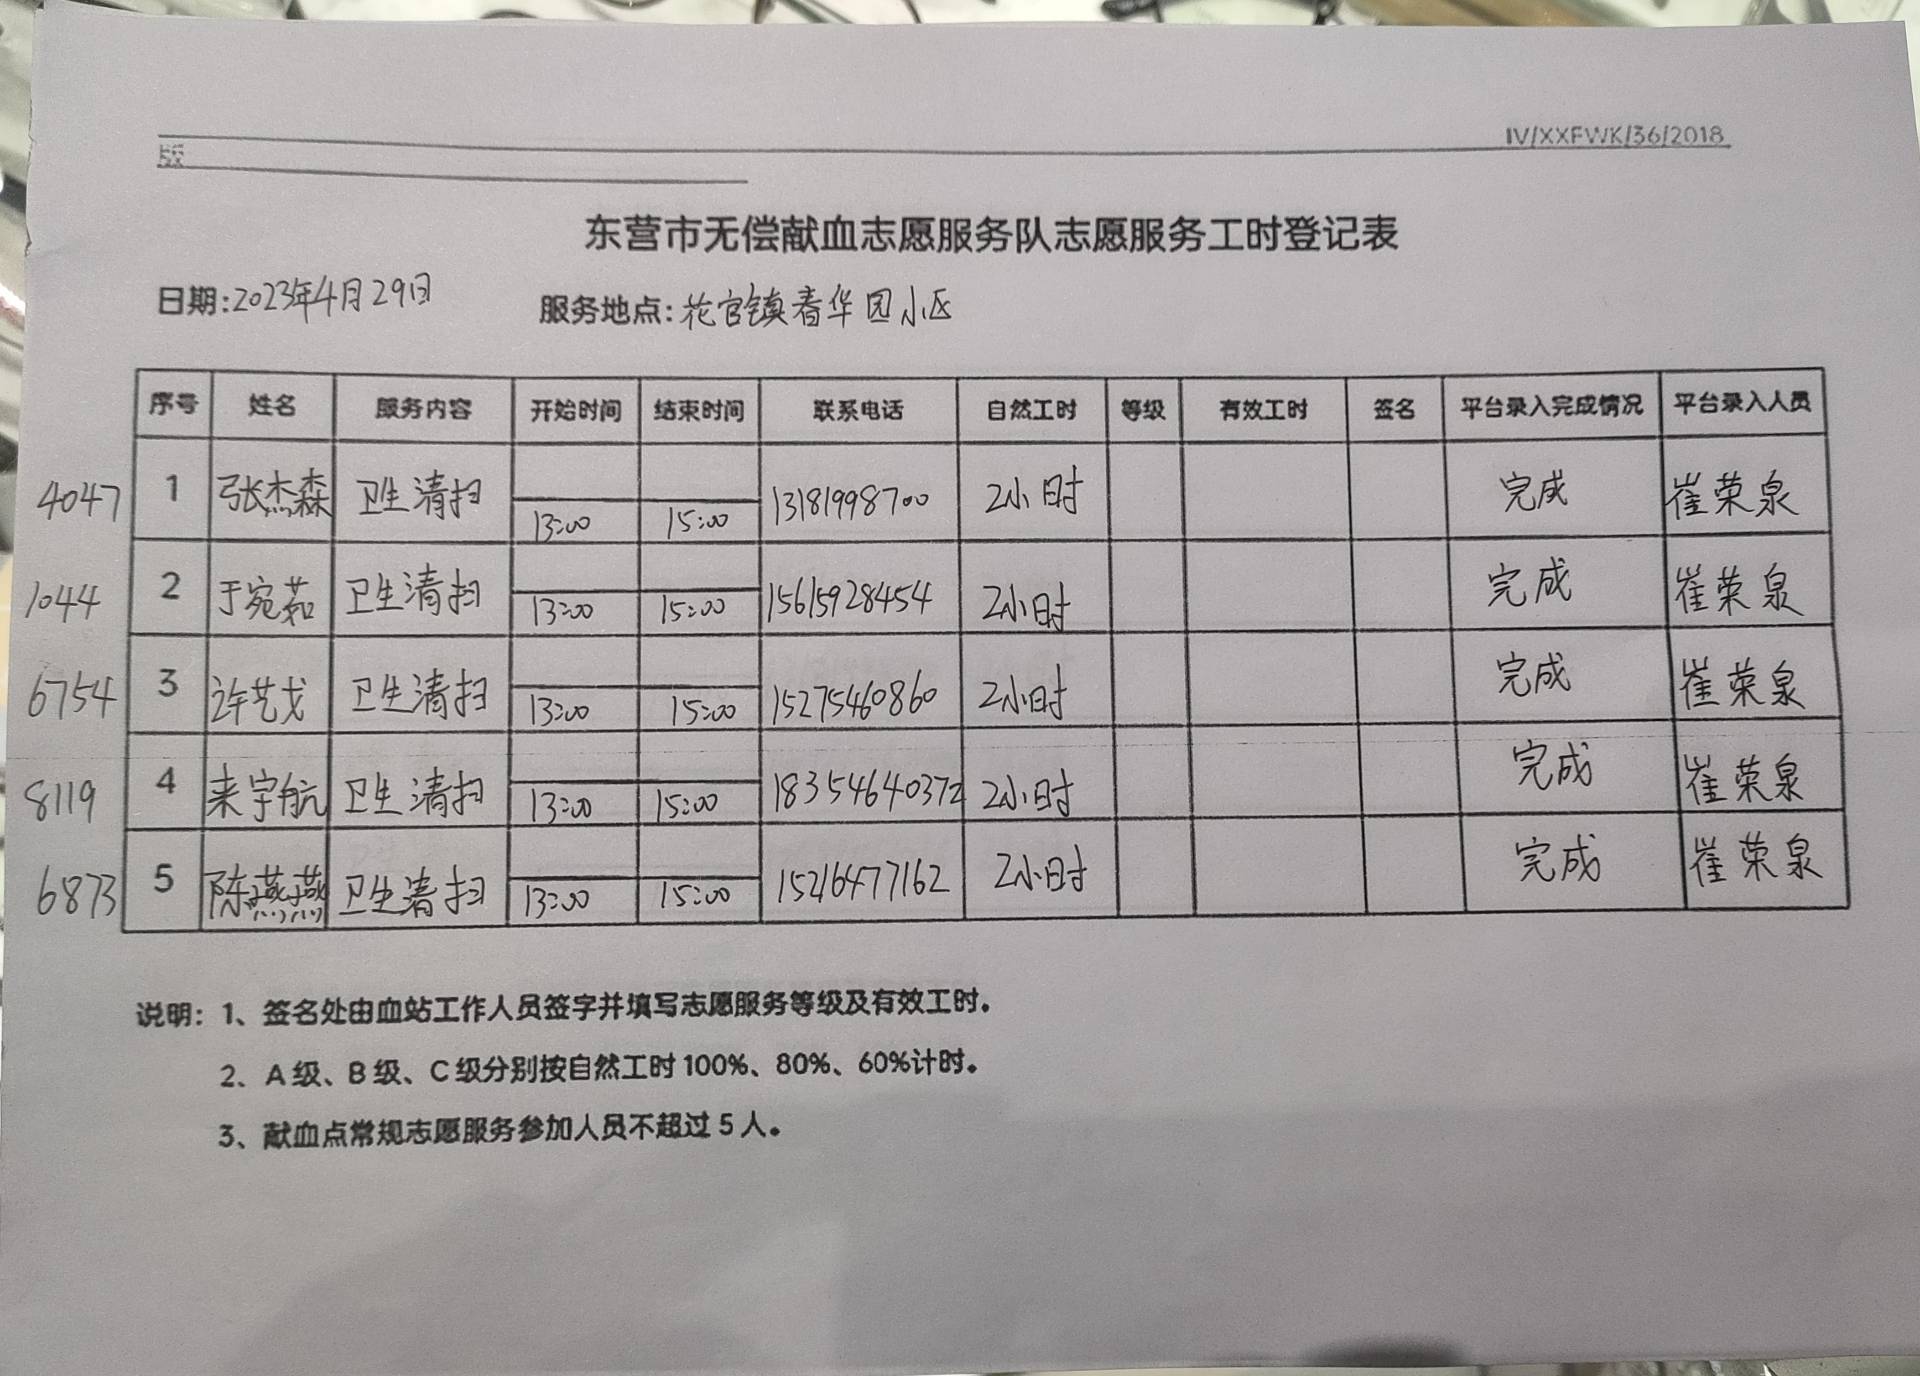 IV/XXFWK/36/2018
版
东营市无偿献血志愿服务队志愿服务工时登记表
日期:2023年4月29日 服务地点:花官镇春华园小区
序号 姓名 服务内容 开始时间 结束时间 联系电话 自然工时 等级 有效工时 签名 平台录入完成情况 平台录入人员
4047 1 张杰森 卫生清扫 13:00 15:00 13181998700 2小时 完成 崔荣泉
1044 2 于宛茹 卫生清扫 13:00 15:00 15615928454 2小时 完成 崔荣泉
6754 3 许艺戈 卫生清扫 13:00 15:00 15275460860 2小时 完成 崔荣泉
8119 4 来宇航 卫生清扫 13:00 15:00 18354640372 2小时 完成 崔荣泉
6873 5 陈燕燕 卫生清扫 13:00 15:00 15216477162 2小时 完成 崔荣泉
说明：1、签名处由血站工作人员签字并填写志愿服务等级及有效工时。
2、A级、B级、C级分别按自然工时100%、80%、60%计时。
3、献血点常规志愿服务参加人员不超过5人。